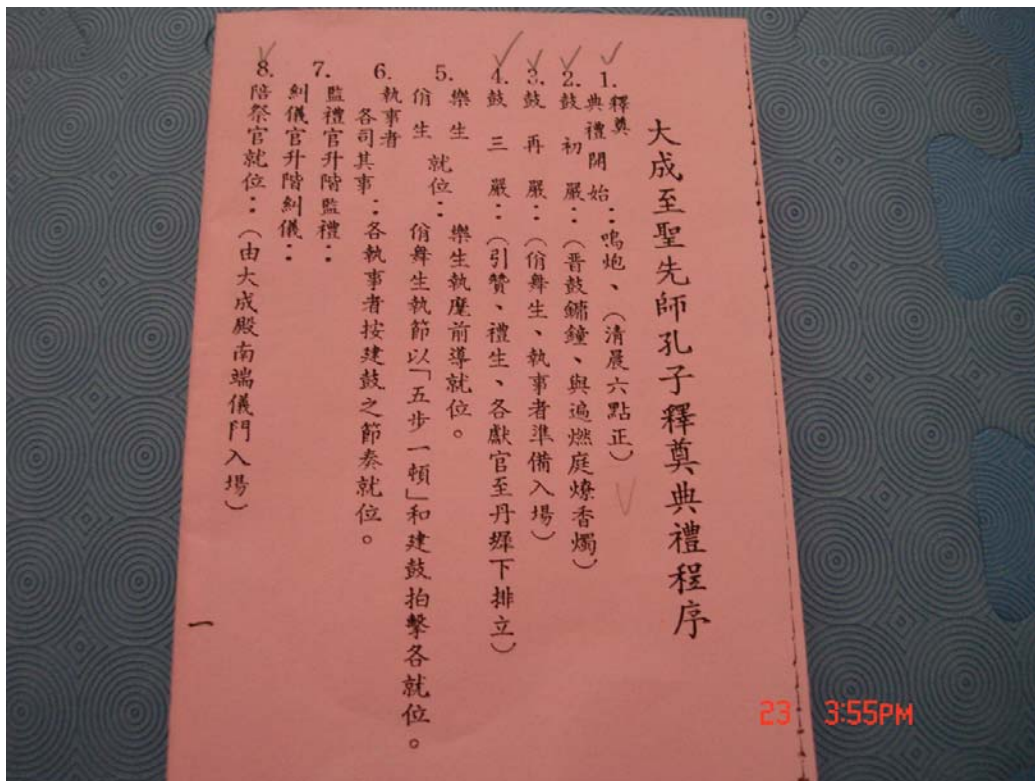 大成至聖先師孔子釋奠典禮程序
1. 釋奠典禮開始：鳴炮、（清晨六點正）
2. 鼓初嚴：（晋鼓鏞鐘、與遍燃庭燎香燭）
3. 鼓再嚴：（佾舞生、執事者準備入場）
4. 鼓三嚴：（引贊、禮生、各獻官至丹墀下排立）
5. 樂生 就位：樂生執麾前導就位。
佾生 佾舞生執節以「五步一頓」和建鼓拍擊各就位。
6. 執事者各司其事：各執事者按建鼓之節奏就位。
7. 監禮官升階監禮：
糾儀官升階糾儀：
8. 陪祭官就位：（由大成殿南端儀門入場）
一
23 3:55PM